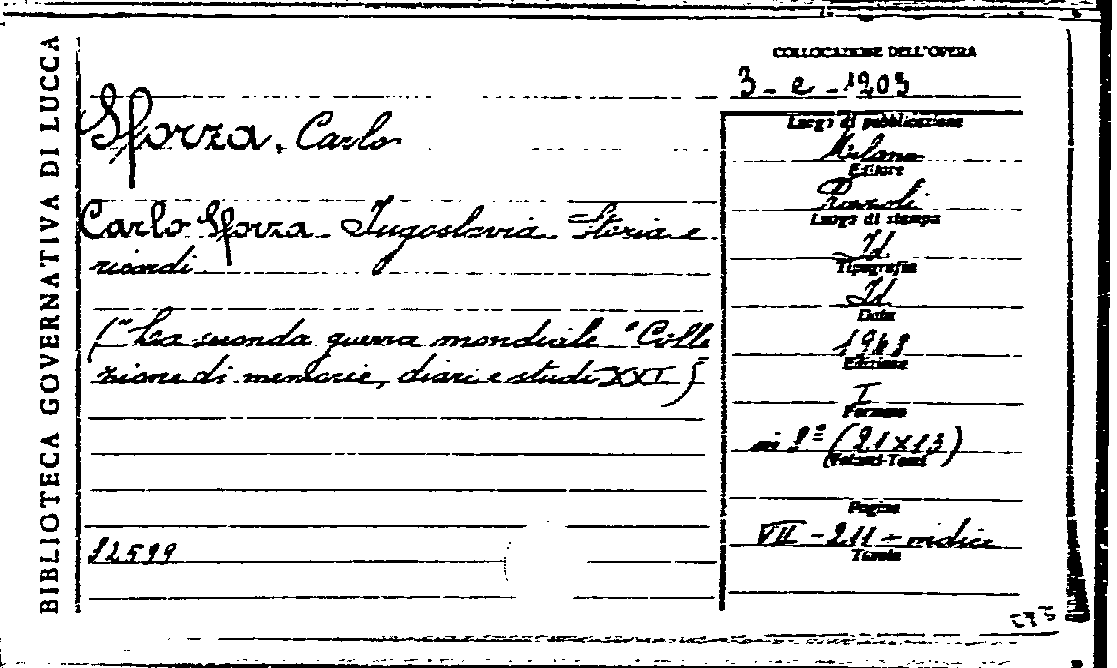 BIBLIOTECA GOVERNATIVA DI LUCCA
COLLOCAZIONE DELL'OPERA
3 - e - 1203
Sforza, Carlo
Carlo Sforza - Jugoslavia - Storia e
ricordi
("La seconda guerra mondiale" Colle
zione di memorie, diari e studi XXI)
12599
Luogo di pubblicazione
Milano
Editore
Rizzoli
Luogo di stampa
Id
Tipografia
Id
Data
1948
Edizione
I
Formato
in 8º (21x13)
(Volumi-Tomi)
Pagine
VII - 211 + indici
Tavole